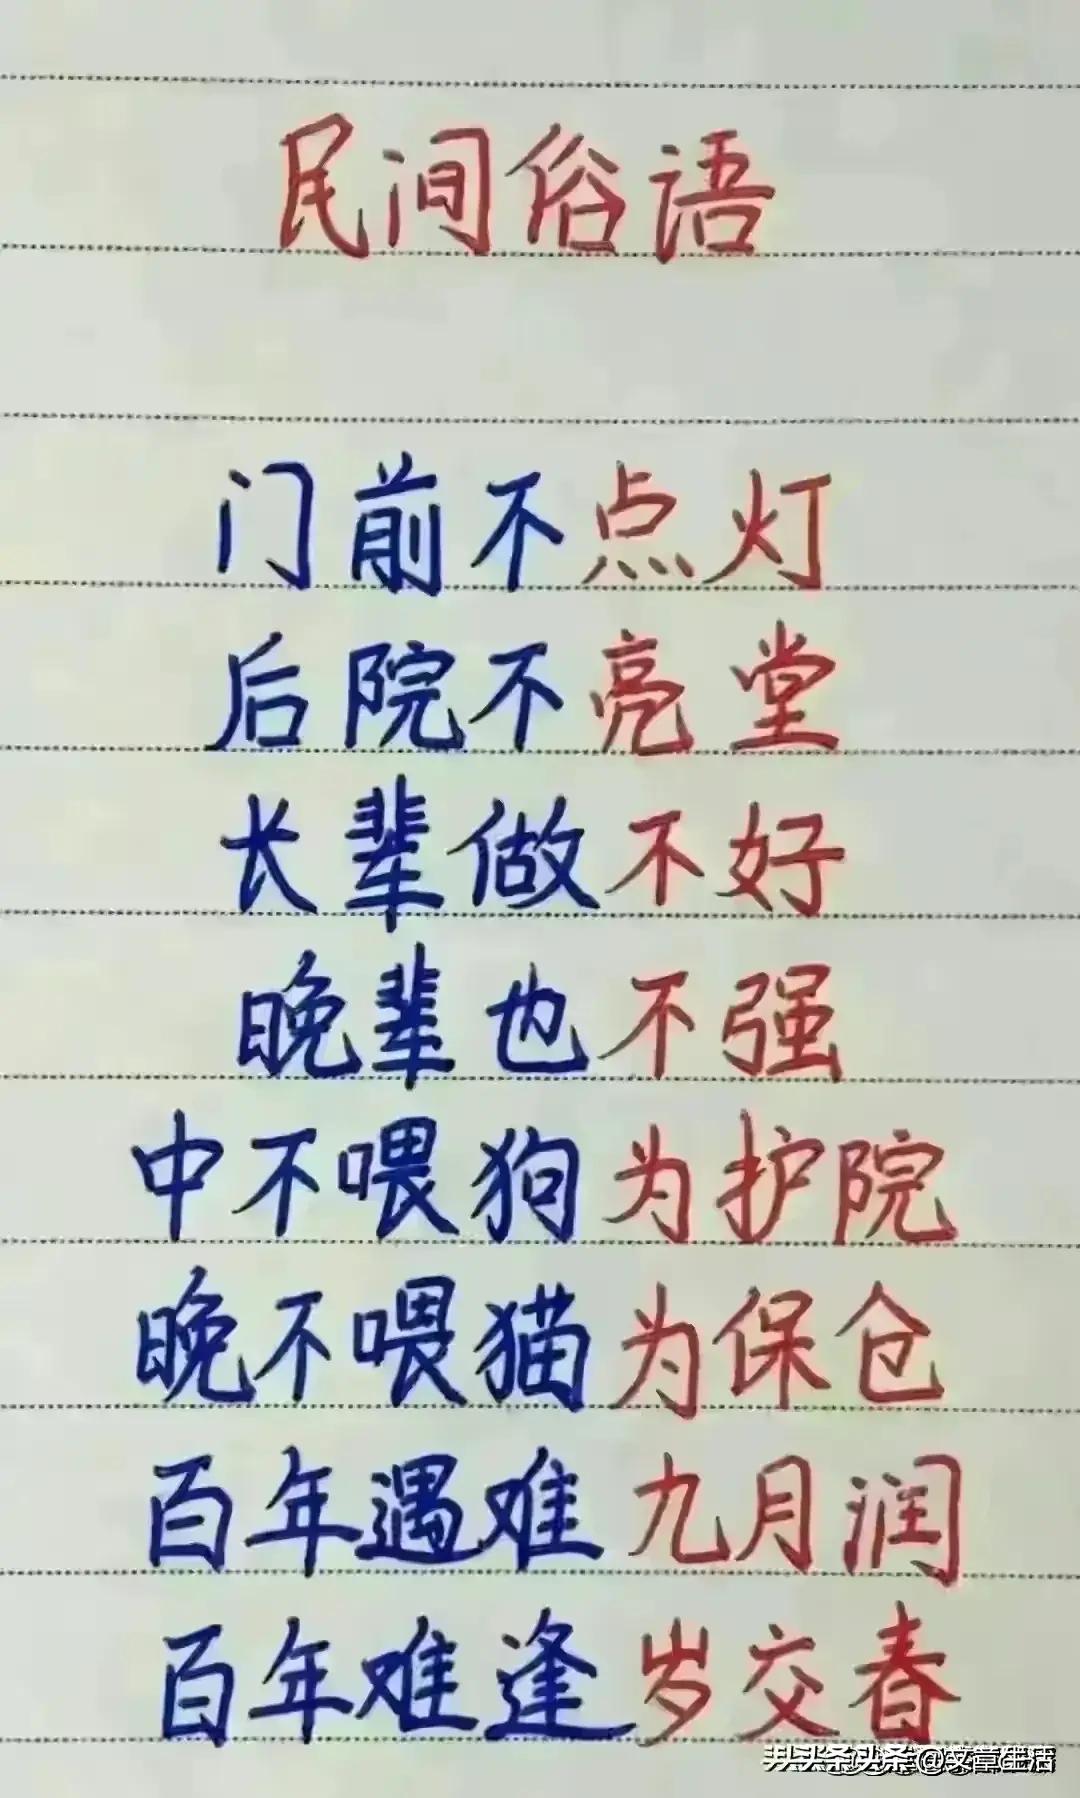 民间俗语
门前不点灯
后院不亮堂
长辈做不好
晚辈也不强
中不喂狗为护院
晚不喂猫为保仓
百年遇难九月润
百年难逢岁交春
头条 @文章生活